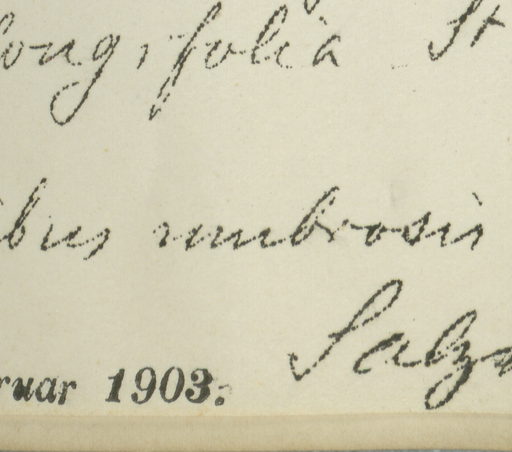 longifolia St
ibus umbrosis
Salz
ruar 1903.